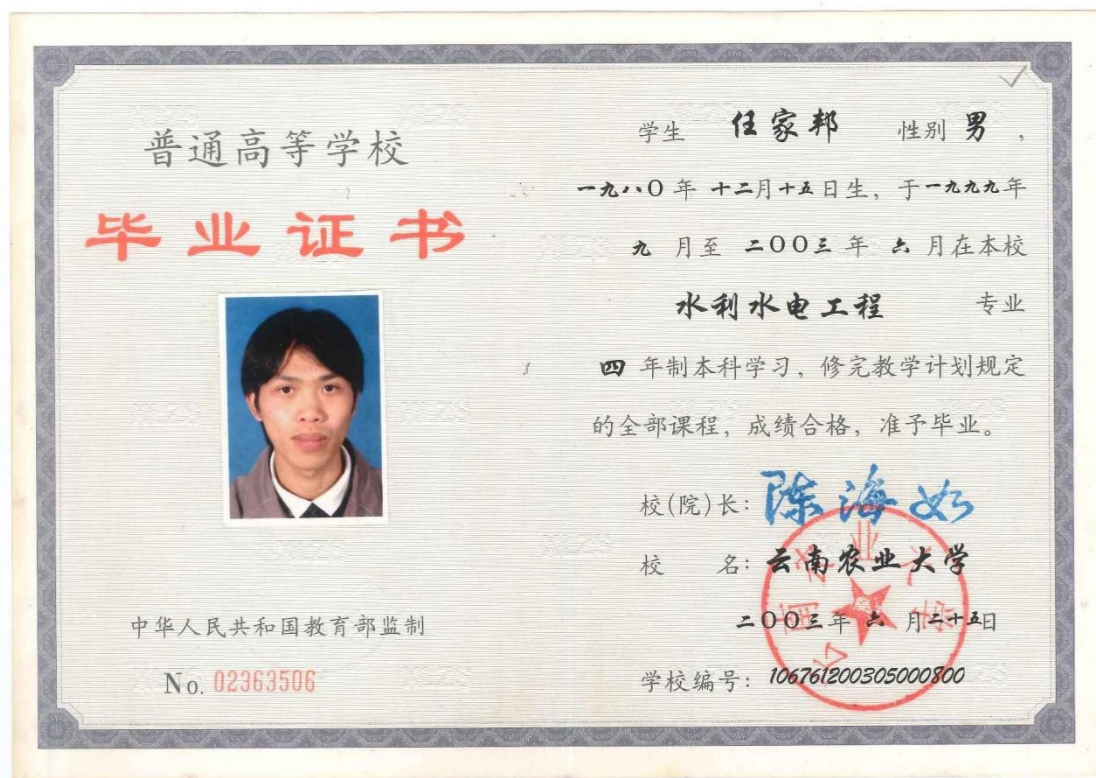 普通高等学校
毕业证书
中华人民共和国教育部监制
No. 02363506
学生 任家邦 性别 男,
一九八〇年 十二月十五日生, 于一九九九年
九 月至 二〇〇三 年 六 月在本校
水利水电工程 专业
四 年制本科学习, 修完教学计划规定
的全部课程, 成绩合格, 准予毕业。
校(院)长: 陈海如
校 名: 云南农业大学
二〇〇三年 六 月二十五日
学校编号: 106761200305000800
云南农业大学